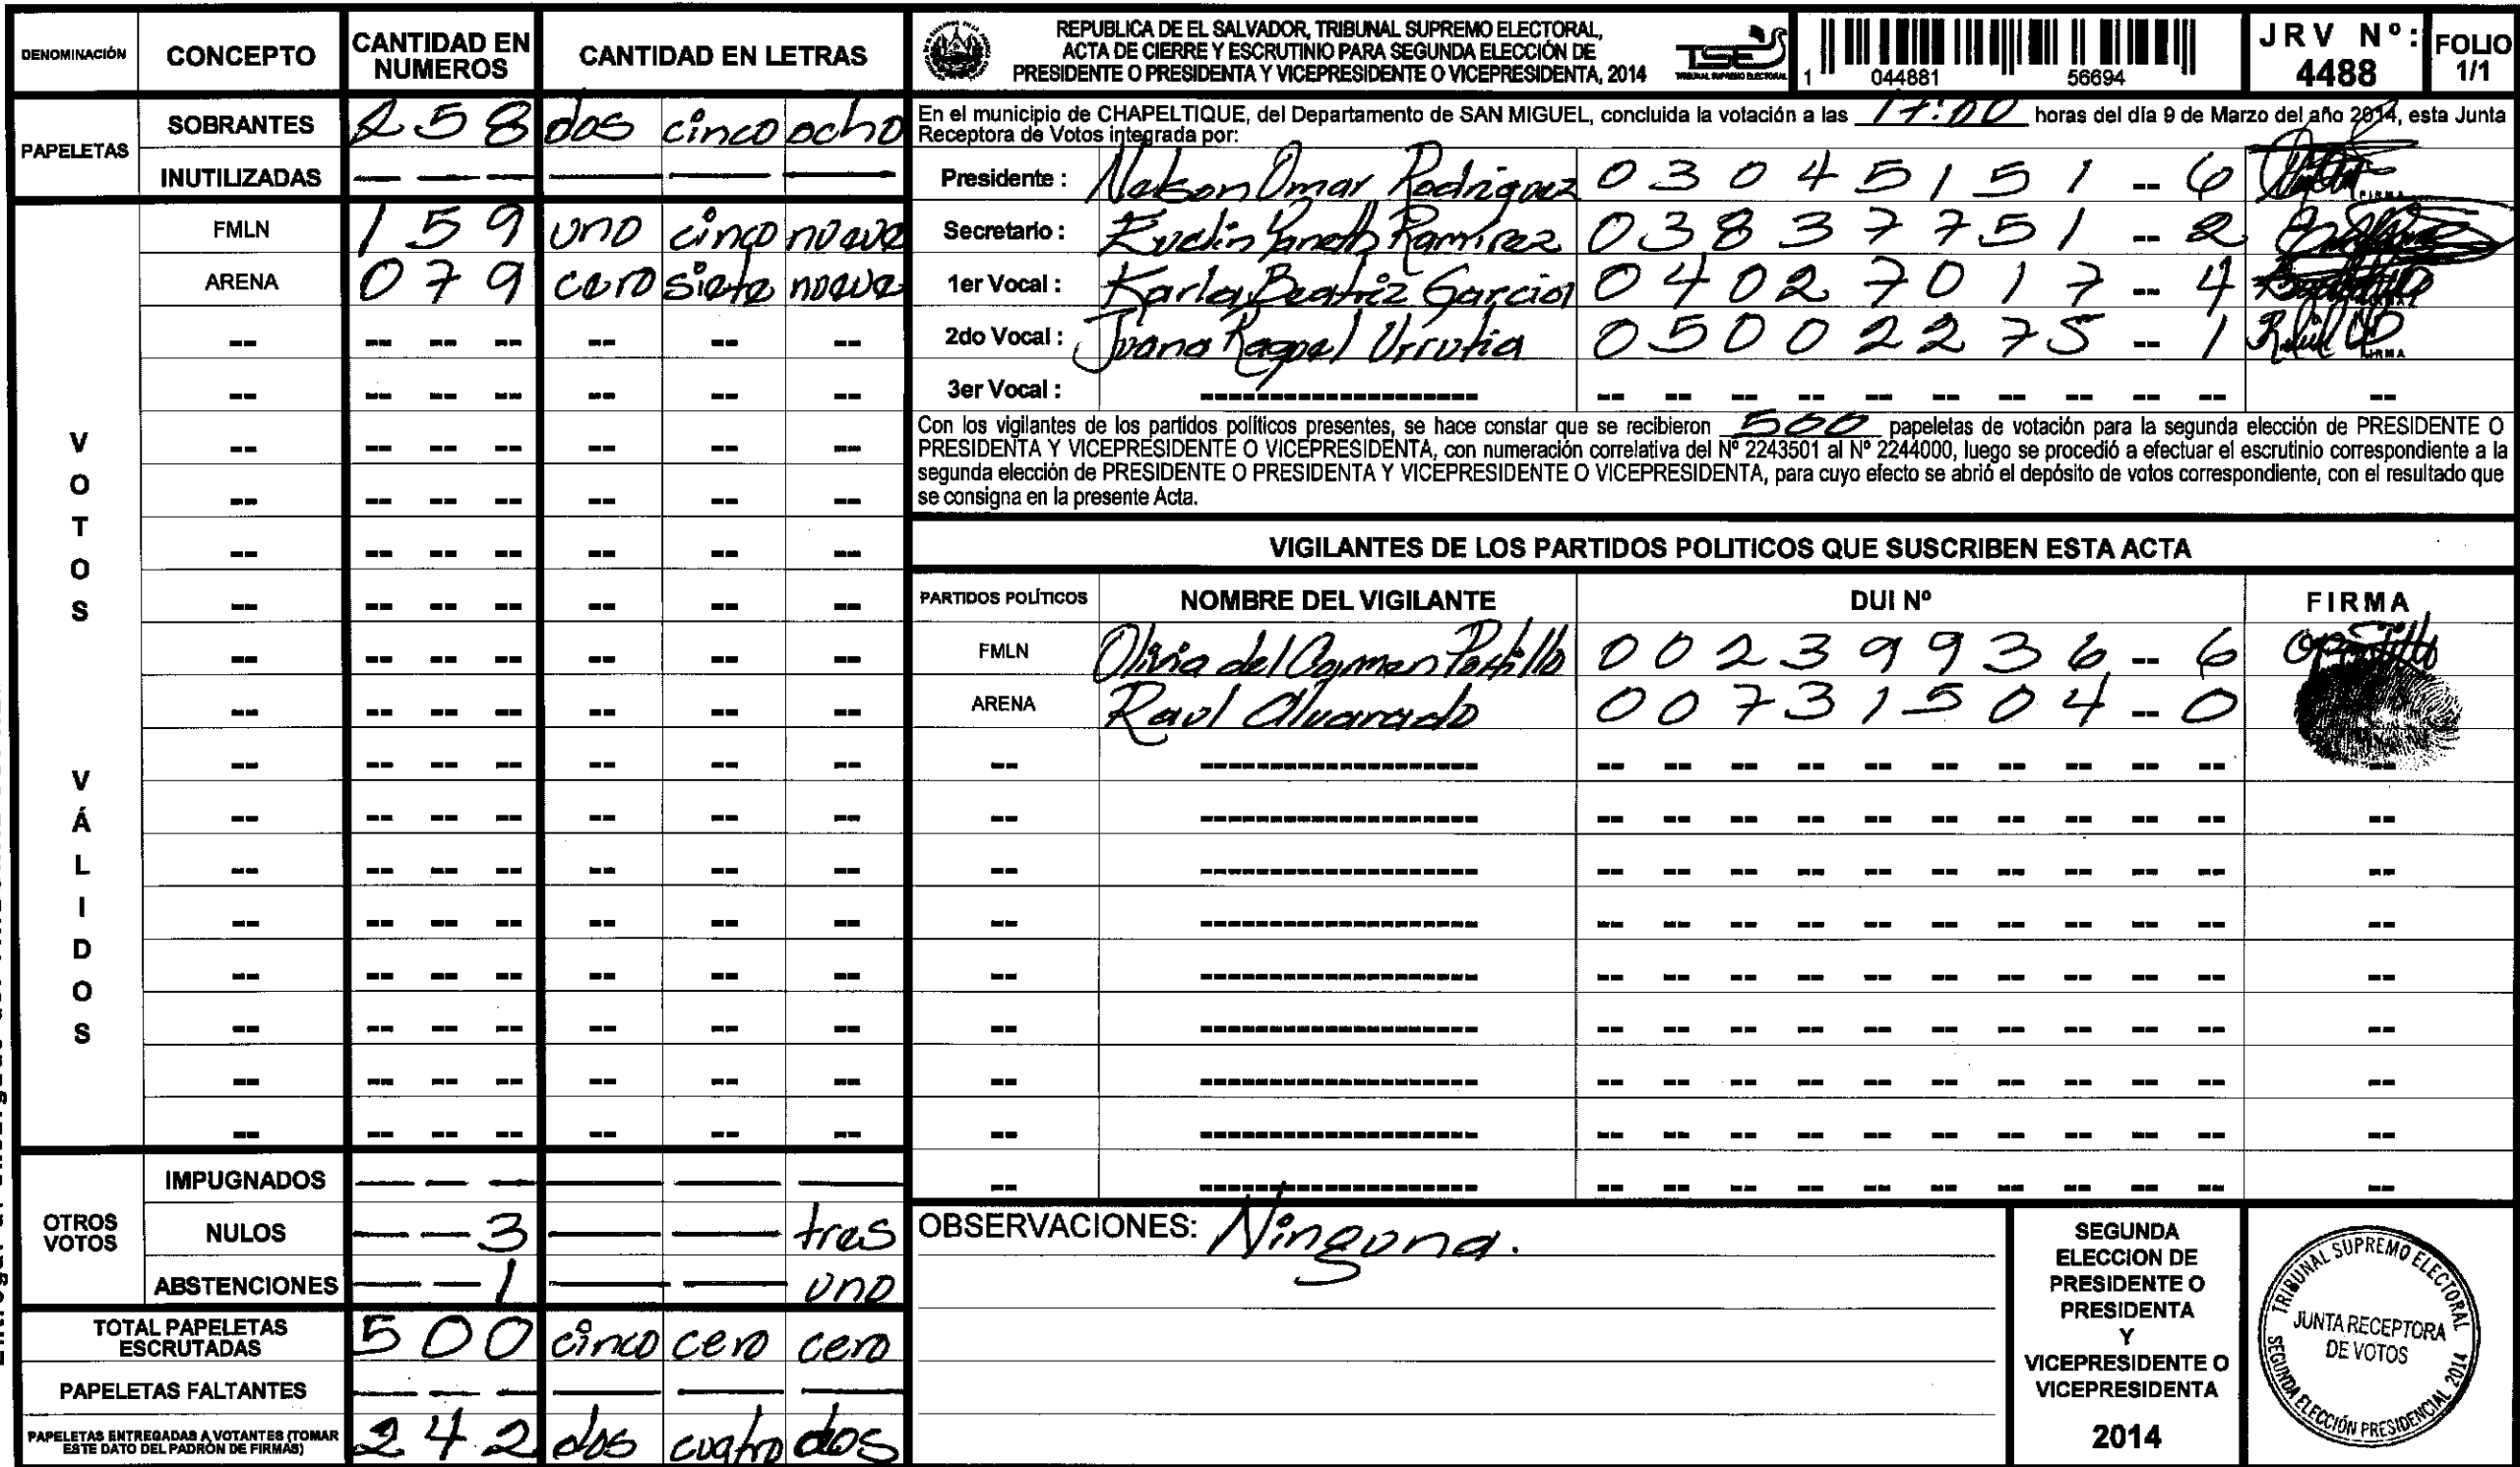 DENOMINACIÓN CONCEPTO CANTIDAD EN NUMEROS CANTIDAD EN LETRAS
PAPELETAS
SOBRANTES 2 5 8 dos cinco ocho
INUTILIZADAS — — — — — —
VOTOS VÁLIDOS
FMLN 1 5 9 uno cinco nueve
ARENA 0 7 9 cero siete nueve
OTROS VOTOS
IMPUGNADOS — — — — — —
NULOS — — 3 — — tres
ABSTENCIONES — — 1 — — uno
TOTAL PAPELETAS ESCRUTADAS 5 0 0 cinco cero cero
PAPELETAS FALTANTES — — — — — —
PAPELETAS ENTREGADAS A VOTANTES (TOMAR ESTE DATO DEL PADRÓN DE FIRMAS) 2 4 2 dos cuatro dos
REPUBLICA DE EL SALVADOR, TRIBUNAL SUPREMO ELECTORAL,
ACTA DE CIERRE Y ESCRUTINIO PARA SEGUNDA ELECCIÓN DE
PRESIDENTE O PRESIDENTA Y VICEPRESIDENTE O VICEPRESIDENTA, 2014
TSE
TRIBUNAL SUPREMO ELECTORAL
1 044881 56694
JRV Nº: 4488
FOLIO 1/1
En el municipio de CHAPELTIQUE, del Departamento de SAN MIGUEL, concluida la votación a las 17:00 horas del día 9 de Marzo del año 2014, esta Junta
Receptora de Votos integrada por:
Presidente : Nelson Omar Rodriguez 0 3 0 4 5 1 5 1 -- 6
Secretario : Ramirez 0 3 8 3 7 7 5 1 -- 2
1er Vocal : Karla Beatriz Garcia 0 4 0 2 7 0 1 7 -- 4
2do Vocal : Juana Raquel Urrutia 0 5 0 0 2 2 7 5 -- 1
3er Vocal :
Con los vigilantes de los partidos políticos presentes, se hace constar que se recibieron 500 papeletas de votación para la segunda elección de PRESIDENTE O
PRESIDENTA Y VICEPRESIDENTE O VICEPRESIDENTA, con numeración correlativa del Nº 2243501 al Nº 2244000, luego se procedió a efectuar el escrutinio correspondiente a la
segunda elección de PRESIDENTE O PRESIDENTA Y VICEPRESIDENTE O VICEPRESIDENTA, para cuyo efecto se abrió el depósito de votos correspondiente, con el resultado que
se consigna en la presente Acta.
VIGILANTES DE LOS PARTIDOS POLITICOS QUE SUSCRIBEN ESTA ACTA
PARTIDOS POLÍTICOS NOMBRE DEL VIGILANTE DUI Nº FIRMA
FMLN Olivia del Carmen Portillo 0 0 2 3 9 9 3 6 -- 6
ARENA Raul Alvarado 0 0 7 3 1 5 0 4 -- 0
OBSERVACIONES: Ninguna.
SEGUNDA
ELECCION DE
PRESIDENTE O
PRESIDENTA
Y
VICEPRESIDENTE O
VICEPRESIDENTA
2014
TRIBUNAL SUPREMO ELECTORAL
JUNTA RECEPTORA
DE VOTOS
SEGUNDA ELECCIÓN PRESIDENCIAL 2014